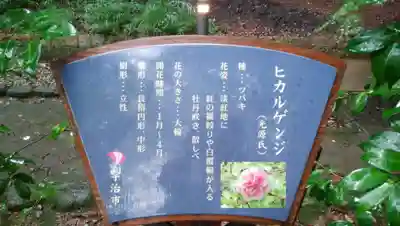 ヒカルゲンジ
(光源氏)
種…ツバキ
花姿…淡紅地に
紅の縦絞りや白覆輪が入る
牡丹咲き、散しべ
花の大きさ…大輪
開花時期…1月〜4月
葉形…長楕円形 中形
樹形…立性
宇治市